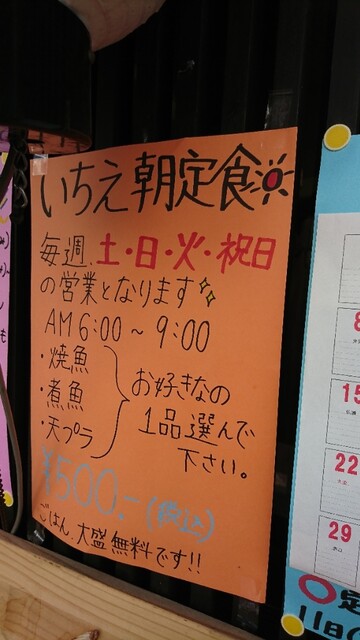 いちえ朝定食
毎週、土・日・火・祝日
の営業となります
AM 6:00 ~ 9:00
・焼魚
・煮魚
・天プラ
お好きなの
1品選んで
下さい。
¥500,- (税込)
ごはん、大盛無料です!!
8
15
22
29
〇定
11日